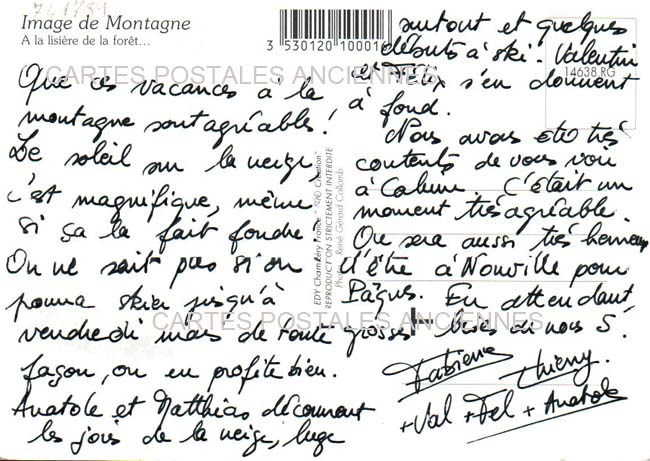 741751
Image de Montagne
A la lisière de la forêt...
3 530120 100016
14638 RG
CARTES POSTALES ANCIENNES
Que ces vacances à la
montagne sont agréables !
Le soleil sur la neige,
c'est magnifique, même
si ça la fait fondre !
On ne sait pas si on
pourra skier jusqu'à
vendredi mais de toute
façon, on en profite bien.
Anatole et Matthias découvrent
les joies de la neige, luge
surtout et quelques
débuts à ski. Valentin
et Félix s'en donnent
à fond.
Nous avons été très
contents de vous voir
à C'était un
moment très agréable.
On sera aussi très heureux
d'être à Nouville pour
Pâques. En attendant
grosses bises de nous 5.
Fabienne Thierry.
+ Val + Fel + Anatole
EDY Chambéry France
REPRODUCTION STRICTEMENT INTERDITE
Photo - René Gérard Collomb
CARTES POSTALES ANCIENNES